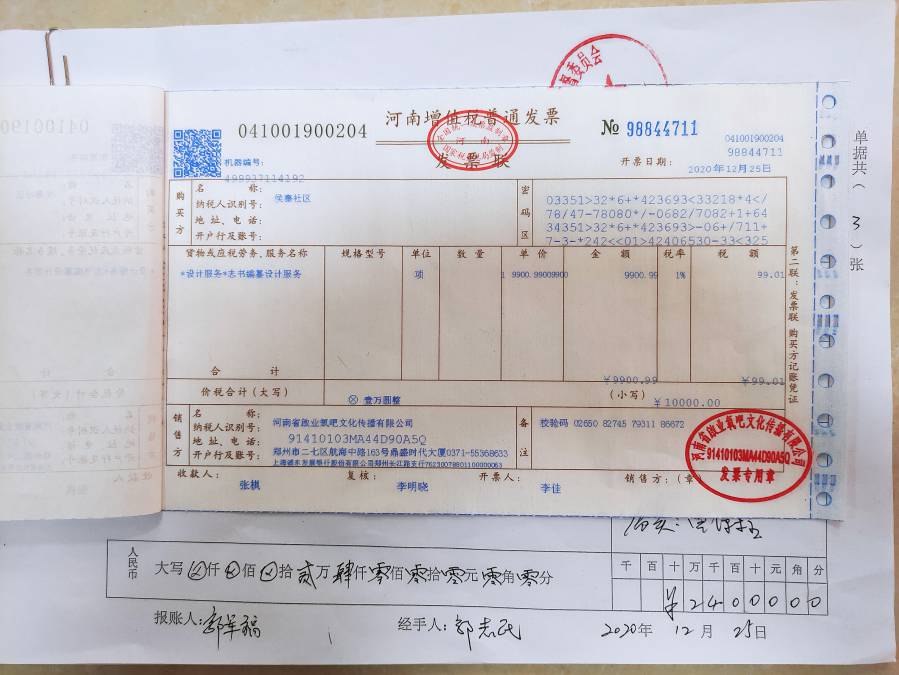 督委员会
041001900204
河南增值税普通发票
全国统一发票监制章
河南
国家税务总局监制
发票联
№ 98844711
041001900204
98844711
机器编号:
499937114192
开票日期:
2020年12月25日
单据共( 3 )张
购买方
名 称:
侯寨社区
纳税人识别号:
地 址、电 话:
开户行及账号:
密码区
03351>32*6+*423693<33218*4</
78/47-78080*/-0682/7082+1+64
34351>32*6+*423693>-06+/711+
7-3-*242<<01>42406530-33<325
货物或应税劳务、服务名称 规格型号 单位 数 量 单 价 金 额 税率 税 额
*设计服务*志书编纂设计服务 项 1 9900.99009900 9900.99 1% 99.01
合 计 ￥9900.99 ￥99.01
价税合计(大写) ⊗ 壹万圆整 (小写) ￥10000.00
销售方
名 称: 河南省啟业氧吧文化传播有限公司
纳税人识别号: 91410103MA44D90A5Q
地址、电话: 郑州市二七区航海中路163号鼎盛时代大厦0371-55368633
开户行及账号: 上海浦东发展银行股份有限公司郑州长江路支行76230078801100000063
备注
校验码 02650 82745 79311 86672
河南省啟业氧吧文化传播有限公司
91410103MA44D90A5Q
发票专用章
收款人: 张祺 复核: 李明晓 开票人: 李佳 销售方:(章)
第二联:发票联 购买方记账凭证
人民币
大写 ⊗仟⊗佰⊗拾贰万肆仟零佰零拾零元零角零分
千 百 十 万 千 百 十 元 角 分
￥2400000
报账人: 经手人: 郭志民 2020年 12月 25日